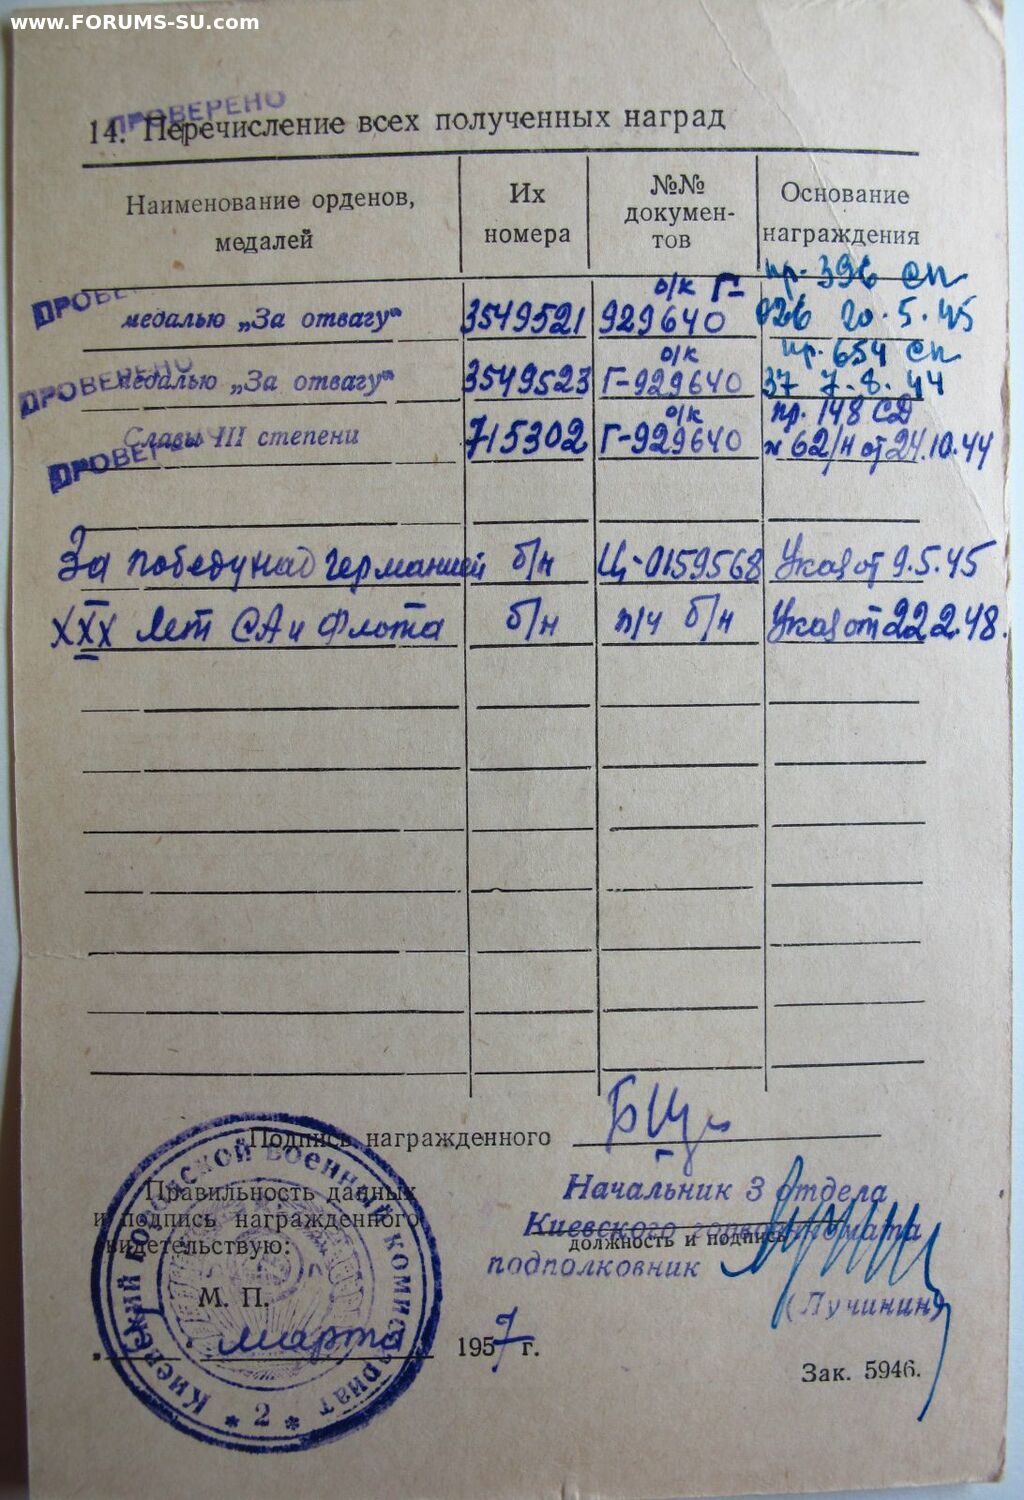 www.FORUMS-SU.com
ПРОВЕРЕНО
14. Перечисление всех полученных наград
Наименование орденов, медалей
Их номера
№№ докумен-тов
Основание награждения
ПРОВЕРЕНО
медалью „За отвагу“ 3549521 о/к Г-929640 пр. 396 сп 026 20.5.45
ПРОВЕРЕНО
медалью „За отвагу“ 3549523 о/к Г-929640 пр. 654 сп 37 7.8.44
ПРОВЕРЕНО
Славы III степени 715302 о/к Г-929640 пр. 148 СД № 62/н от 24.10.44
За победу над Германией б/н Ц-0159568 Указ от 9.5.45
XXX лет СА и Флота б/н п/ч б/н Указ от 22.2.48.
Подпись награжденного
Правильность данных
и подпись награжденного
свидетельствую:
Начальник 3 отдела
Киевского горвоенкомата
должность и подпись
подполковник
(Лучинин)
М. П.
марта 1957 г.
Зак. 5946.
Киевский городской военный комиссариат
* 2 *